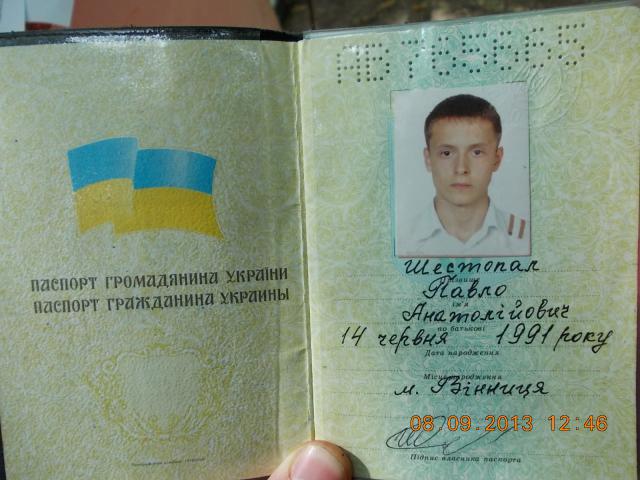 ПАСПОРТ ГРОМАДЯНИНА УКРАЇНИ
ПАСПОРТ ГРАЖДАНИНА УКРАИНЫ
АВ 795665
Шестопал
Прізвище
Павло
Ім'я
Анатолійович
По батькові
14 червня 1991 року
Дата народження
Місце народження
м. Вінниця
08.09.2013 12:46
Підпис власника паспорта